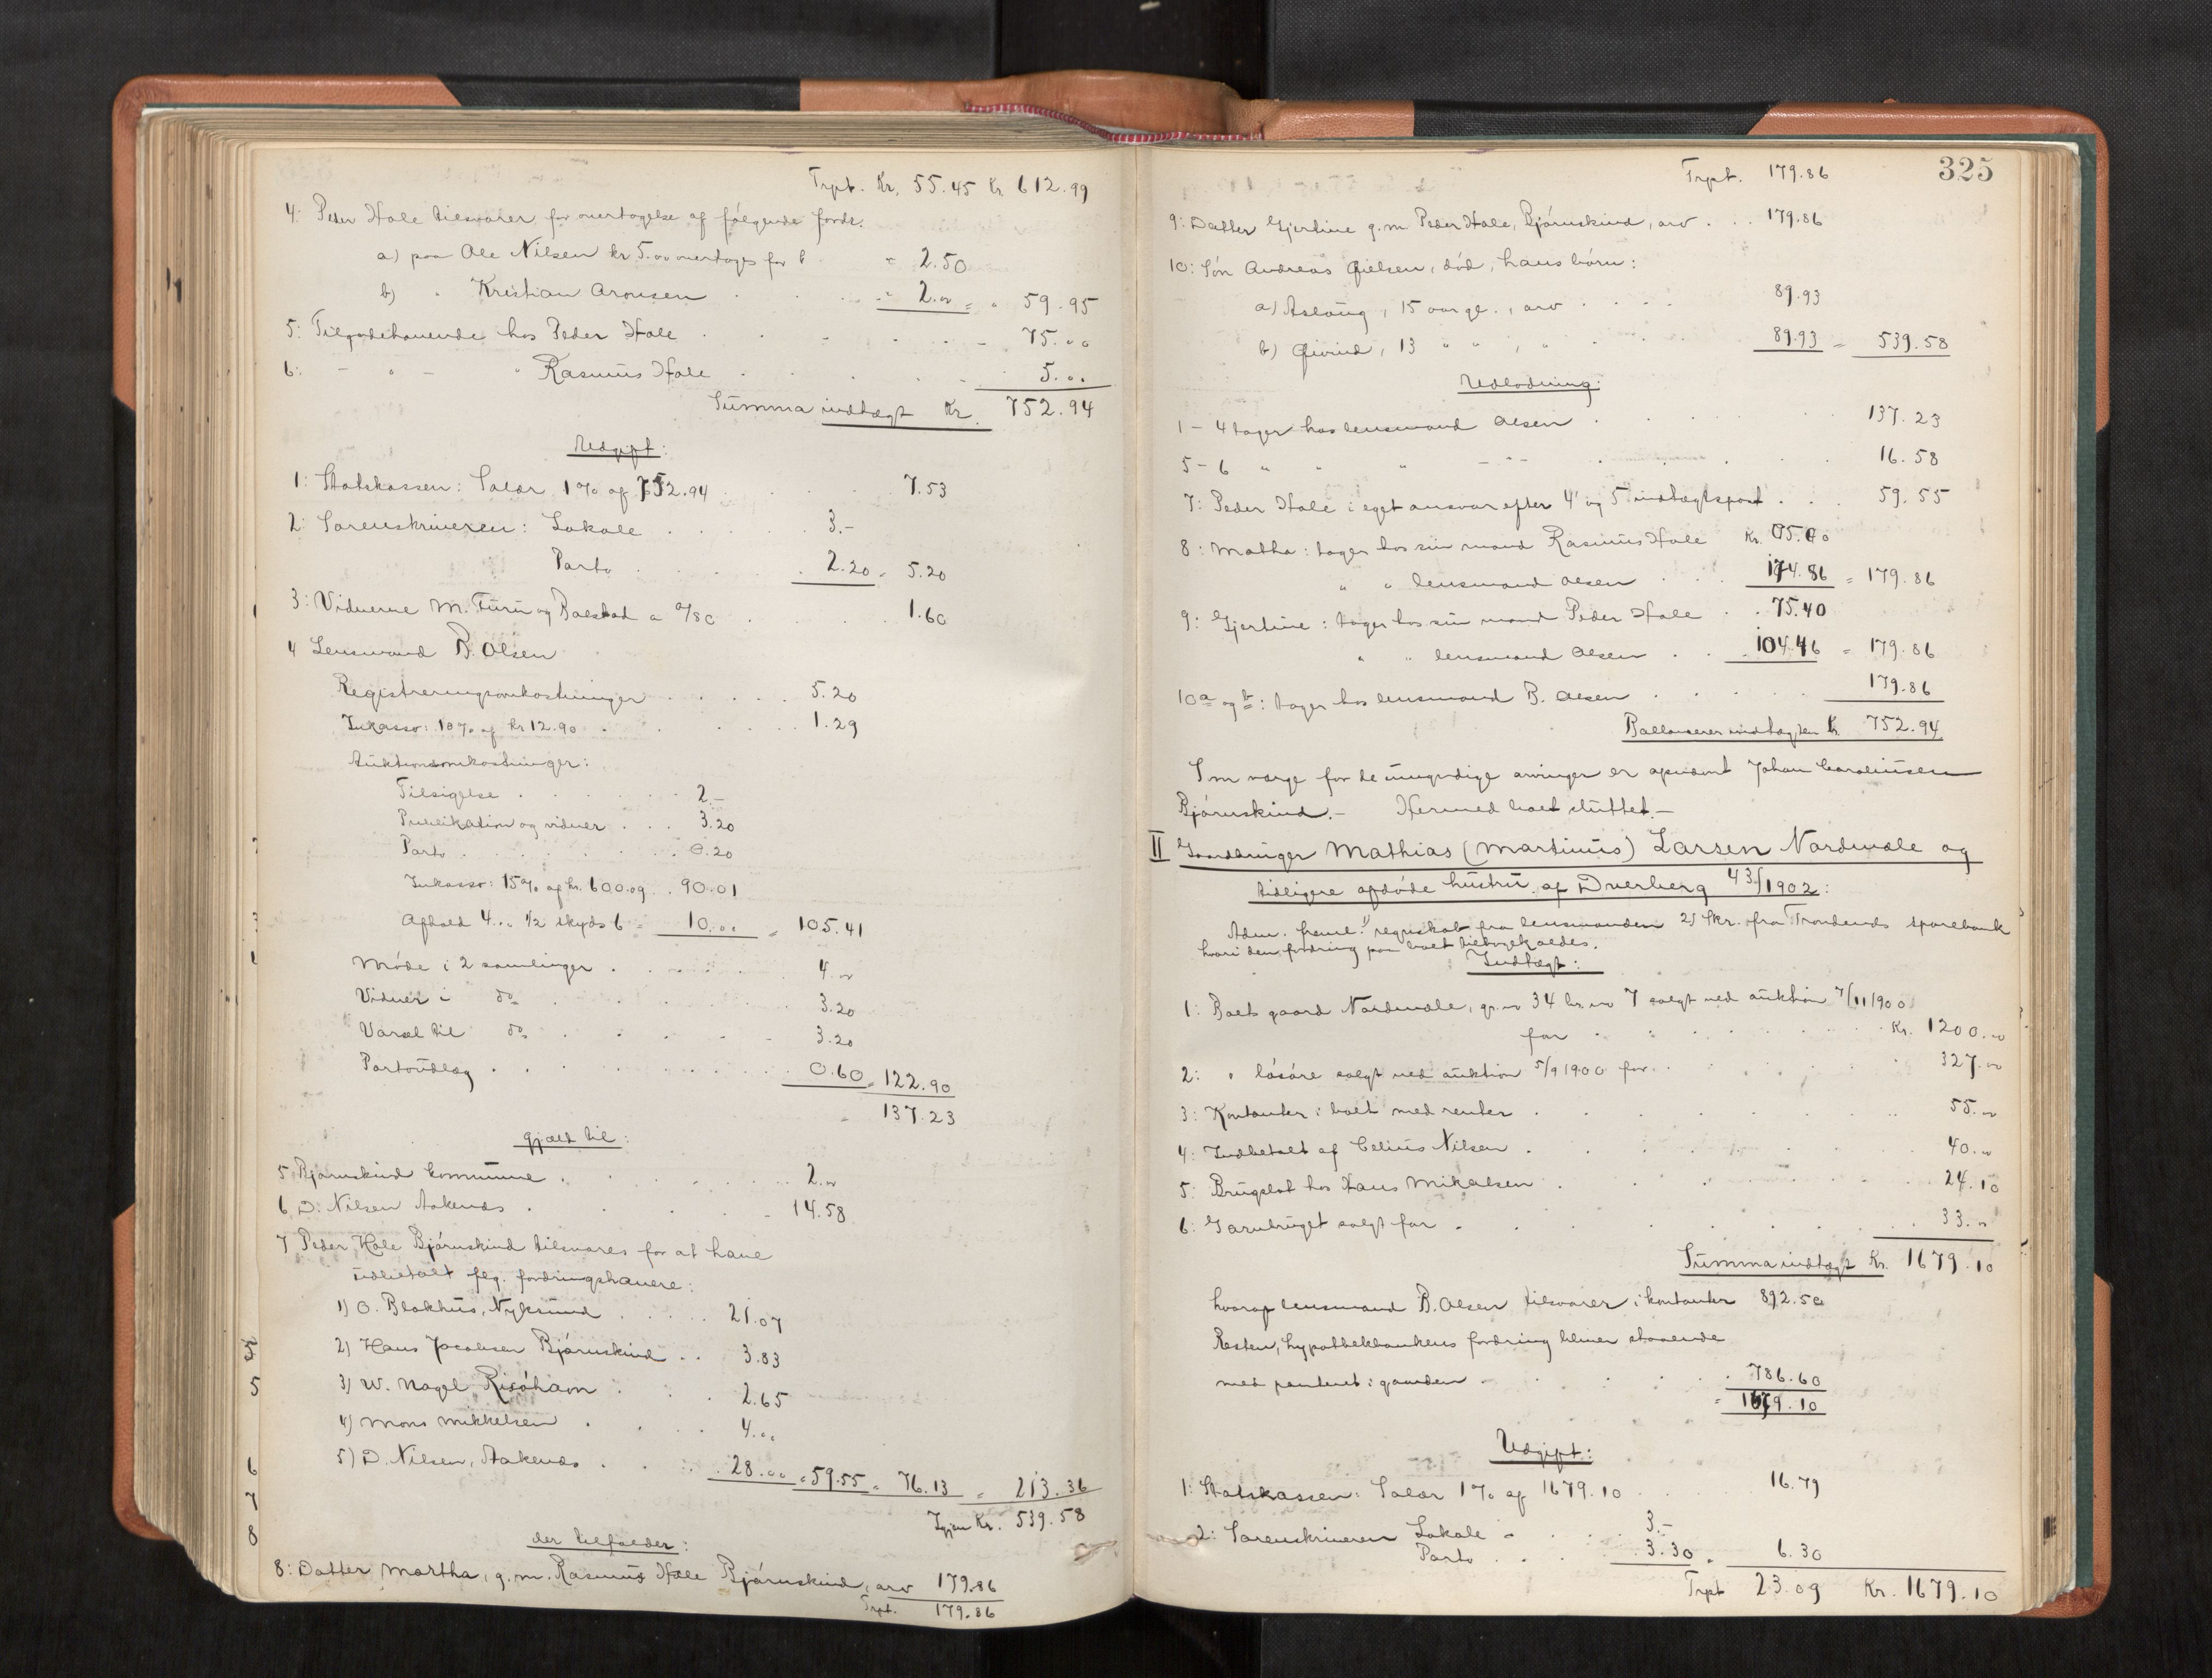 Trpt. Kr. 55.45 Kr. 612.99
4: Peder Hole tilsvarer for overtagelse af følgende fordr.
a) paa Ole Nilsen kr 5.00 overtages for " 2.50
b) " Kristian Aronsen " 2.00 = " 59.95
5: Tilgodehavende hos Peder Hole 75.00
6: - " - " Rasmus Hole 5.00
Summa indtægt Kr. 752.94
Udgift:
1: Statskassen: Salær 1% af 752.94 7.53
2: Sorenskriveren: Lokale 3.-
Porto 2.20 = 5.20
3: Vidnerne M. Furu og Bolstad a 0/80 1.60
4 Lensmand B. Olsen
Registreringsomkostninger 5.20
Inkasso: 10% af kr 12.90 1.29
Auktionsomkostninger:
Tilsigelse 2.-
Publikation og vidner 3.20
Porto 0.20
Inkasso: 15% af kr. 600.09 90.01
Afhold 4.00 1/2 skyds 6 = 10.00 = 105.41
Møde i 2 samlinger 4.00
Vidner i do 3.20
Varsel til do 3.20
Portoudlæg 0.60 = 122.90
137.23
Gjæld til:
5 Bjørnskind kommune 2.00
6 D. Nilsen Aakenes 14.58
7 Peder Hole Bjørnskind tilsvares for at have
udbetalt flg. fordringshavere:
1) O. Blokhus, Nyksund 21.07
2) Hans Jacobsen Bjørnskind 3.83
3) W. Nagel Risøhavn 2.65
4) Mons Mikkelsen 4.00
5) D. Nilsen, Aakenes 28.00 = 59.55 = 76.13 = 213.36
Igjen Kr. 539.58
der tilfalder:
8: Datter Martha, g.m. Rasmus Hole Bjørnskind, arv 179.86
Trpt. 179.86
325
Trpt. 179.86
9: Datter Gjertine g.m. Peder Hole, Bjørnskind, arv 179.86
10: Søn Andreas Eielsen, død, hans børn:
a) Aslaug, 15 aar gl., arv 89.93
b) Eivind, 13 " " , " 89.93 = 539.58
Udlodning:
1 - 4 tager hos lensmand Olsen 137.23
5 - 6 " " " - " - 16.58
7: Peder Hole i eget ansvar efter 4 og 5 indtægtspost 59.55
8: Martha: tager hos sin mand Rasmus Hole Kr. 05.00
" " lensmand Olsen 174.86 = 179.86
9: Gjertine: tager hos sin mand Peder Hole 75.40
" " lensmand Olsen 104.46 = 179.86
10 a og b: tager hos lensmand B. Olsen 179.86
Ballancerer indtægten Kr. 752.94
Som værge for de umyndige arvinger er opnævnt Johan Caroliussen
Bjørnskind.- Hermed boet sluttet.-
II Gaardbruger Mathias (Martinus) Larsen Nordmæle og
tidligere afdøde hustru af Dverberg 43/1902:
Adm. freml. 1) regnskab fra lensmanden 2) Skr. fra Trondenes sparebank
hvori den fordring paa boet tilbagekaldes.
Indtægt:
1: Boets gaard Nordmæle, gr.no 34 br.no 7 solgt ved auktion 7/11 1900
for Kr. 1200.00
2: " løsøre solgt ved auktion 5/9 1900 for 327.00
3: Kontanter i boet med renter 55.00
4: Indbetalt af Celius Nilsen 40.00
5: Brugslod hos Hans Mikalsen 24.10
6: Garnbruget solgt for 33.00
Summa indtægt Kr. 1679.10
hvoraf lensmand B. Olsen tilsvarer i kontanter 892.50
Resten, hypothekbankens fordring bliver staaende
med panteret i gaarden 786.60
= 1679.10
Udgift:
1: Statskassen: Salær 1% af 1679.10 16.79
2: Sorenskriveren Lokale 3.-
Porto 3.30 = 6.30
Trpt 23.09 Kr. 1679.10